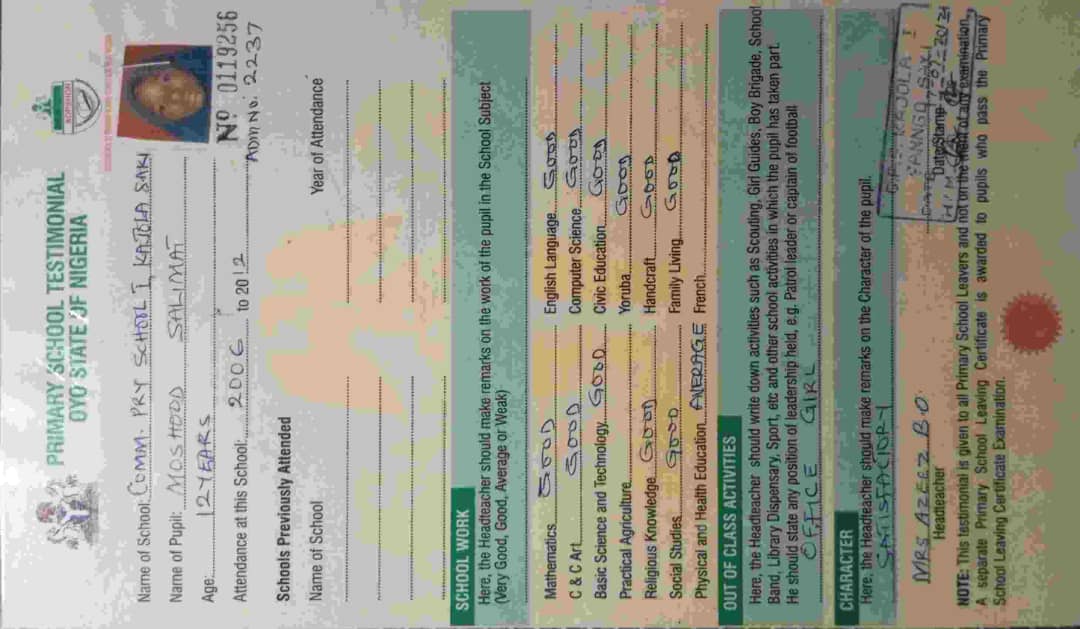 PRIMARY SCHOOL TESTIMONIAL
OYO STATE OF NIGERIA
Name of School: COMM. PRY SCHOOL I, KAJOLA SAKI
Name of Pupil: MOSHOOD SALIMAT
Age: 12 YEARS
Nº 0119256
Attendance at this School: 2006 to 2012 Admn No. 2237
Schools Previously Attended
Name of School Year of Attendance
SCHOOL WORK
Here, the Headteacher should make remarks on the work of the pupil in the School Subject
(Very Good, Good, Average or Weak)
Mathematics GOOD English Language GOOD
C & C Art GOOD Computer Science GOOD
Basic Science and Technology GOOD Civic Education GOOD
Practical Agriculture Yoruba GOOD
Religious Knowledge GOOD Handcraft GOOD
Social Studies GOOD Family Living GOOD
Physical and Health Education AVERAGE French
OUT OF CLASS ACTIVITIES
Here, the Headteacher should write down activities such as Scouding, Girl Guides, Boy Brigade, School
Band, Library Dispensary, Sport, etc and other school activities in which the pupil has taken part.
He should state any position of leadership held, e.g. Patrol leader or captain of football
OFFICE GIRL
CHARACTER
Here, the Headteacher should make remarks on the Character of the pupil.
SATISFACTORY
KAJOLA I
MRS AZEEZ B.O.
Headteacher Date/Stamp
NOTE: This testimonial is given to all Primary School Leavers and not on the result of any examination.
A separate Primary School Leaving Certificate is awarded to pupils who pass the Primary
School Leaving Certificate Examination.